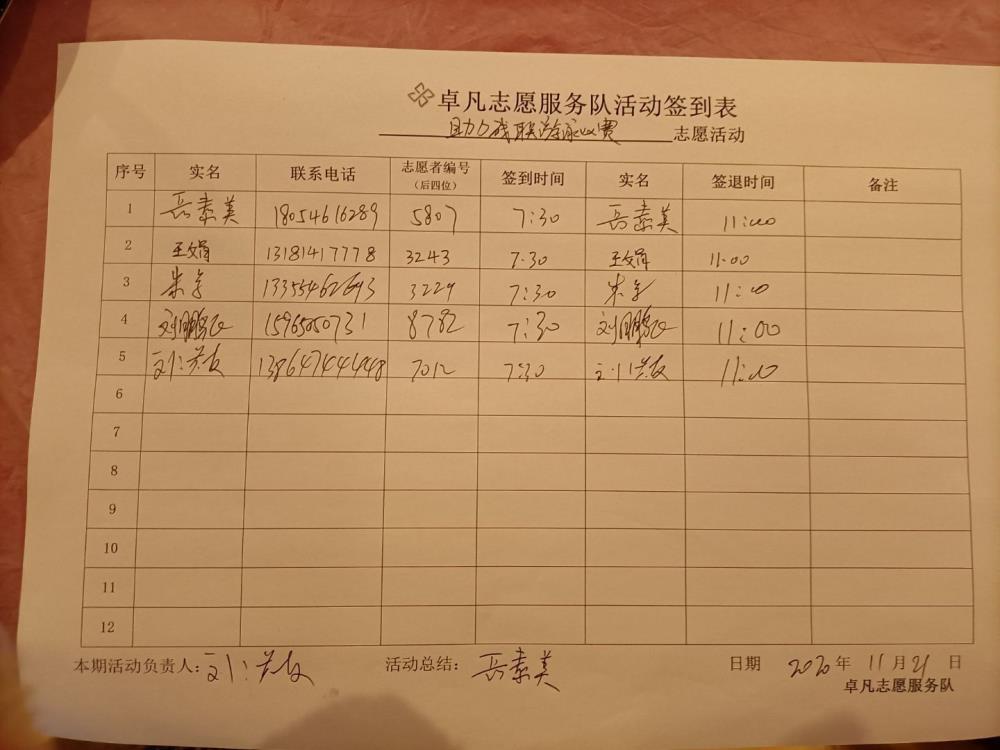 卓凡志愿服务队活动签到表
志愿活动
序号 实名 联系电话 志愿者编号（后四位） 签到时间 实名 签退时间 备注
1 岳素美 18054616289 5807 7:30 岳素美 11:00
2 王文娟 13181417778 3243 7:30 王文娟 11:00
3 朱 13355462693 3229 7:30 朱 11:00
4 刘鹏飞 15965050731 8782 7:30 刘鹏飞 11:00
5 刘 13864744448 7012 7:30 刘 11:00
6
7
8
9
10
11
12
本期活动负责人: 刘 活动总结: 岳素美 日期 2020年 11月21日
卓凡志愿服务队